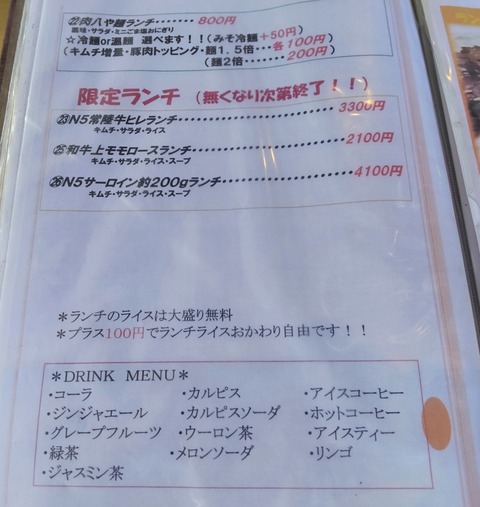 ㉒肉八や麺ランチ・・・・・・・800円
キムチ・サラダ・ミニごま塩おにぎり
☆冷麺or温麺 選べます！！(みそ冷麺+50円)
(キムチ増量・豚肉トッピング・麺1．5倍・・・各100円)
(麺2倍・・・・・・・200円)
限定ランチ (無くなり次第終了！！)
㉓N5常陸牛ヒレランチ・・・・・・・・・・・・・・・・・・3300円
キムチ・サラダ・ライス
㉕和牛上モモロースランチ・・・・・・・・・・・・・・・・2100円
キムチ・サラダ・ライス・スープ
㉖N5サーロイン約200gランチ・・・・・・・・・・・・・・4100円
キムチ・サラダ・ライス・スープ
＊ランチのライスは大盛り無料
＊プラス100円でランチライスおかわり自由です！！
＊DRINK MENU＊
・コーラ ・カルピス ・アイスコーヒー
・ジンジャエール ・カルピスソーダ ・ホットコーヒー
・グレープフルーツ ・ウーロン茶 ・アイスティー
・緑茶 ・メロンソーダ ・リンゴ
・ジャスミン茶